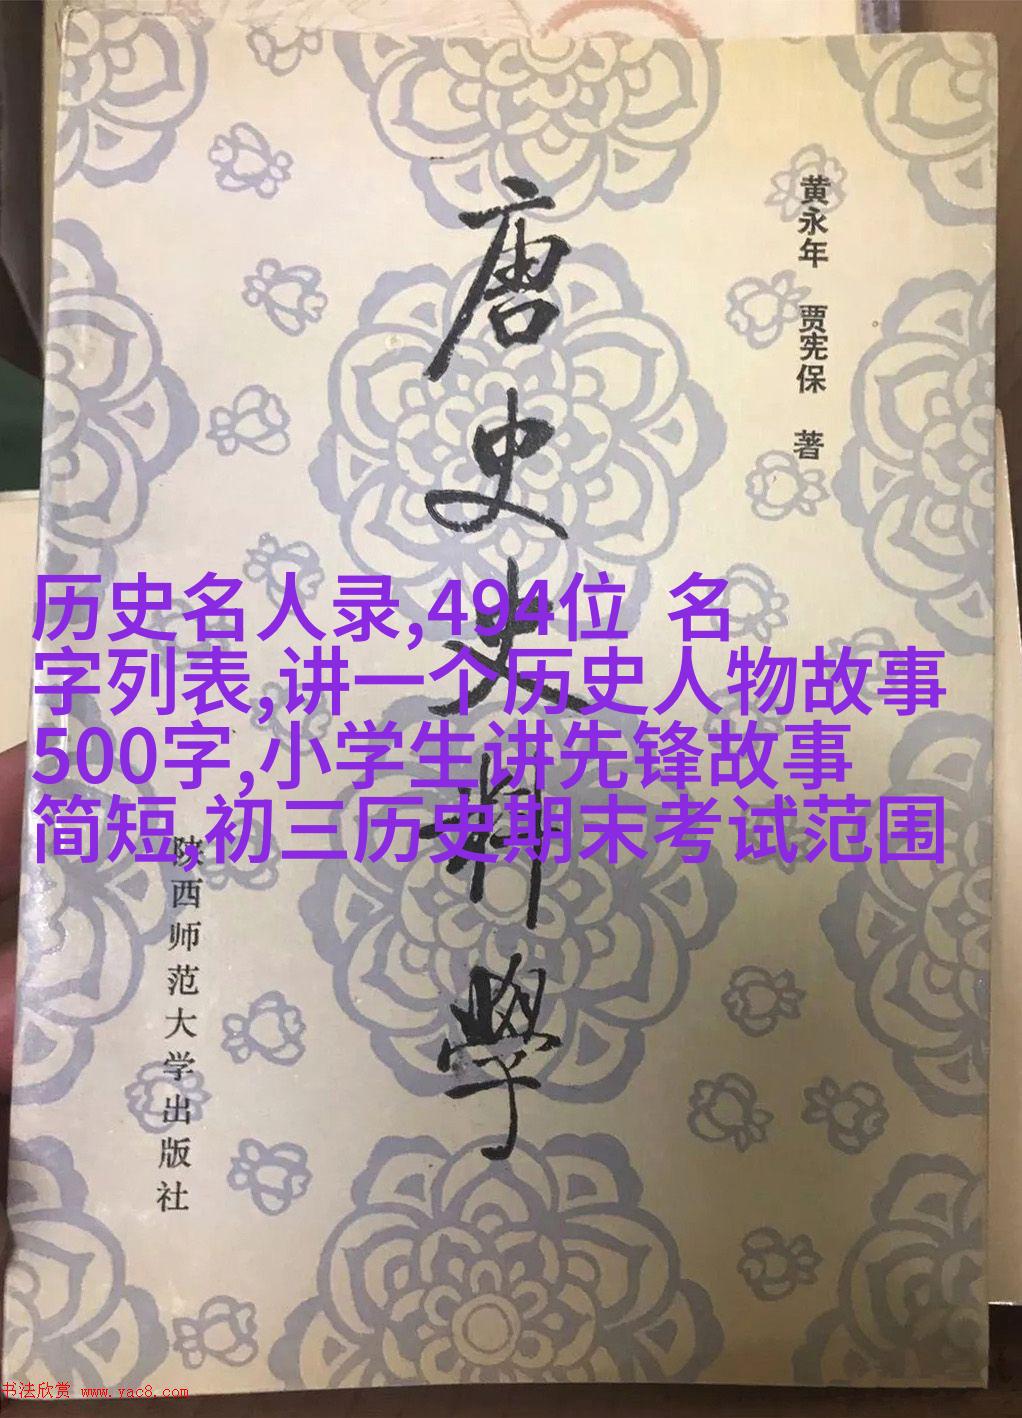 唐史史料学
黄永年 贾宪保 著
历史名人录,494位 名
字列表,讲一个历史人物故事
500字,小学生讲先锋故事
简短,初三历史期末考试范围
陕西师范大学出版社
书法欣赏 www.yac8.com